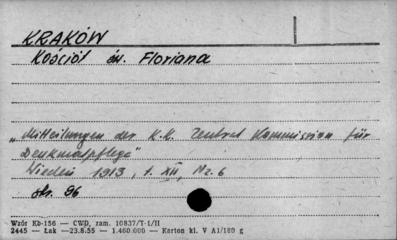 KRAKÓW
Kościół św. Floriana
„Mitteilungen der K.K. Zentral Kommission für
Denkmalpflege"
Wiedeń 1913, t. XII, Nr. 6
str. 86
Wzór Kb-156 — CWD, zam. 10837/T-1/II
2445 — Łak —23.8.55 — 1.460.000 — Karton kl. V A1/180 g